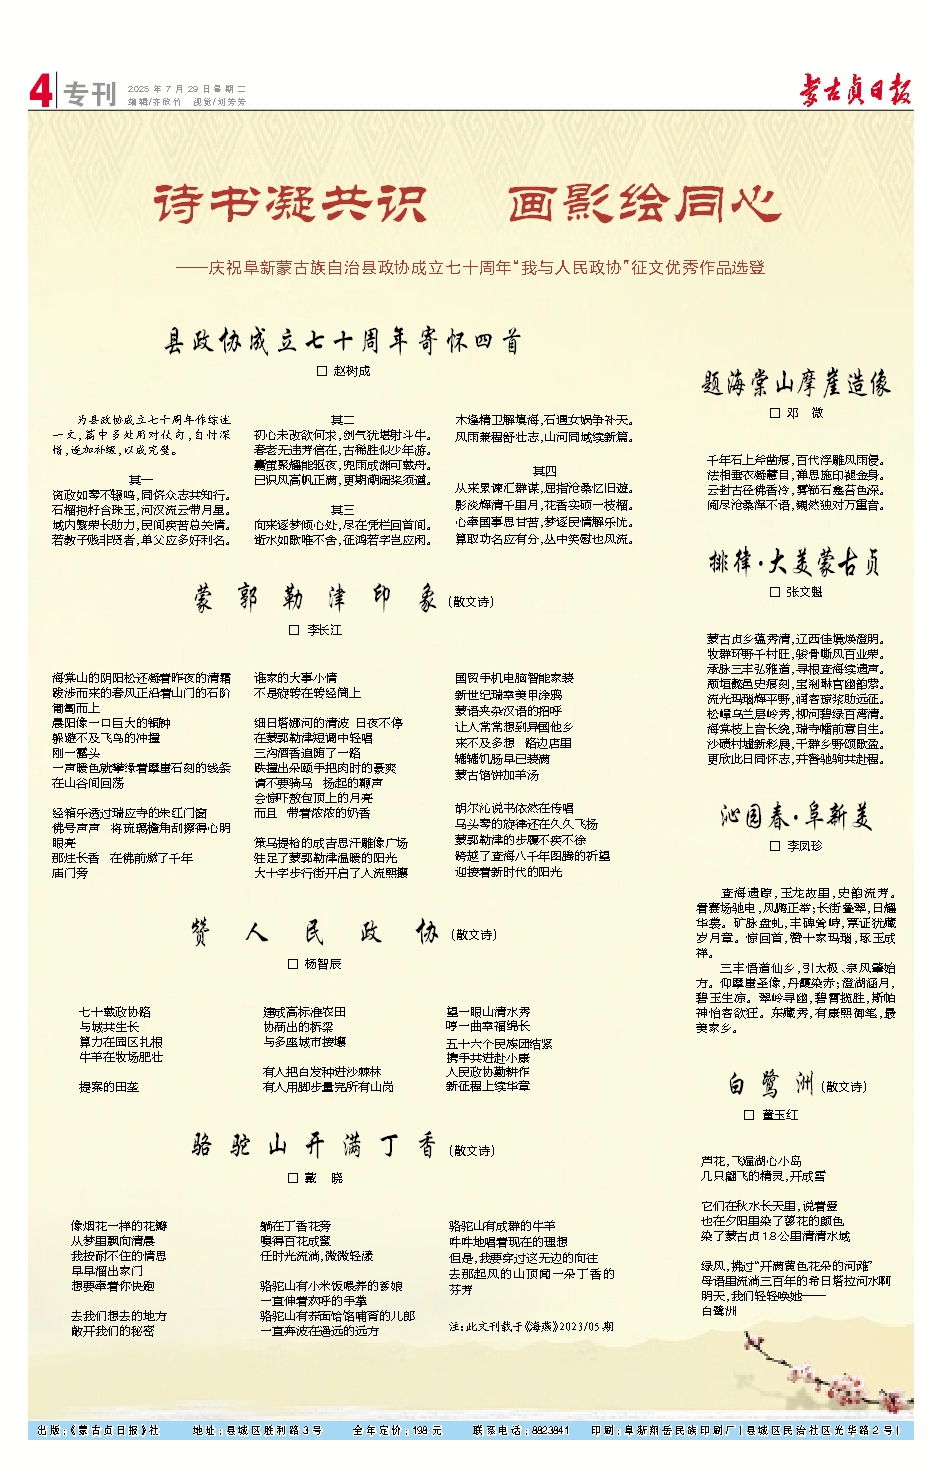 4 专刊
2025年7月29日星期二
编辑/齐欣竹 视觉/刘芳芳
蒙古贞日报
诗书凝共识 画影绘同心
——庆祝阜新蒙古族自治县政协成立七十周年“我与人民政协”征文优秀作品选登
县政协成立七十周年寄怀四首
□ 赵树成
为县政协成立七十周年作综述
一文,篇中多处用对仗句,自忖深
情,遂加补缀,以成完璧。
其一
资政如琴不辍鸣,同侪众志共知行。
石榴抱籽合珠玉,河汉流云带月星。
域内繁荣长助力,民间疾苦总关情。
若教子贱非贤者,单父应多好利名。
其二
初心未改欲何求,剑气犹堪射斗牛。
春老无违芳信在,古稀胜似少年游。
囊萤聚耀能驱夜,兜雨成渊可载舟。
已识风高帆正满,更期潮阔桨须遒。
其三
向来逐梦倾心处,尽在凭栏回首间。
逝水如歌唯不舍,征鸿若字岂应闲。
木逢精卫解填海,石遇女娲争补天。
风雨兼程舒壮志,山河同域续新篇。
其四
从来累谏汇群谋,屈指沧桑忆旧遊。
影淡辉清千里月,花香实硕一枝榴。
心牵国事思甘苦,梦逐民情解乐忧。
算取功名应有分,丛中笑慰也风流。
蒙郭勒津印象(散文诗)
□ 李长江
海棠山的阴阳松还凝着昨夜的清霜
跋涉而来的春风正沿着山门的石阶
匍匐而上
晨阳像一口巨大的铜钟
躲避不及飞鸟的冲撞
刚一露头
一声暖色就攀缘着摩崖石刻的线条
在山谷间回荡
经筒乐透过瑞应寺的朱红门窗
佛号声声 将琉璃檐角刮擦得心明
眼亮
那炷长香 在佛前燃了千年
庙门旁
谁家的大事小情
不是旋转在转经筒上
细日塔娜河的清波 日夜不停
在蒙郭勒津短调中轻唱
三沟酒香追随了一路
跌撞出朵颐手把肉时的豪爽
请不要骑马 扬起的鞭声
会惊吓敖包顶上的月亮
而且 带着浓浓的奶香
策马提枪的成吉思汗雕像广场
驻足了蒙郭勒津温暖的阳光
大十字步行街开启了人流熙攘
国贸手机电脑智能家装
新世纪瑞幸美甲涂鸦
蒙语夹杂汉语的招呼
让人常常想到异国他乡
来不及多想 路边店里
辘辘饥肠早已装满
蒙古馅饼加羊汤
胡尔沁说书依然在传唱
马头琴的旋律还在久久飞扬
蒙郭勒津的步履不疾不徐
跨越了查海八千年图腾的祈望
迎接着新时代的阳光
赞人民政协(散文诗)
□ 杨智辰
七十载政协路
与城共生长
算力在园区扎根
牛羊在牧场肥壮
提案的田垄
建成高标准农田
协商出的桥梁
与多座城市接壤
有人把白发种进沙棘林
有人用脚步量完所有山岗
望一眼山清水秀
哼一曲幸福绵长
五十六个民族团结紧
携手共进赴小康
人民政协勤耕作
新征程上续华章
骆驼山开满丁香(散文诗)
□ 戴 晓
像烟花一样的花瓣
从梦里飘向清晨
我按耐不住的情思
早早溜出家门
想要牵着你快跑
去我们想去的地方
敞开我们的秘密
躺在丁香花旁
嗅得百花成蜜
任时光流淌,微微轻漾
骆驼山有小米饭喂养的爹娘
一直伸着欢呼的手掌
骆驼山有荞面饸饹哺育的儿郎
一直奔波在遥远的远方
骆驼山有成群的牛羊
咩咩地唱着现在的理想
但是,我要穿过这无边的向往
去那起风的山顶闻一朵丁香的
芬芳
注:此文刊载于《海燕》2023/05期
题海棠山摩崖造像
□ 邓 微
千年石上斧凿痕,百代浮雕风雨侵。
法相垂衣凝慧目,禅思施印褪金身。
云封古径佛香冷,雾锁石龛苔色深。
阅尽沧桑浑不语,巍然独对万重音。
排律·大美蒙古贞
□ 张文魁
蒙古贞乡蕴秀清,辽西佳境焕澄明。
牧群环野千村旺,骏骨嘶风百业荣。
承脉三丰弘雅道,寻根查海续遗声。
颓垣懿邑史痕刻,宝刹琳宫幽韵萦。
流光玛瑙辉平野,润客琼浆助远征。
松嶂乌兰层岭秀,柳河碧绿百湾清。
海棠枝上音长绕,瑞寺幡前意自生。
沙碛村墟新彩展,干群乡野颂歌盈。
更欣此日同怀志,并辔驰驹共赴程。
沁园春·阜新美
□ 李凤珍
查海遗踪,玉龙故里,史韵流芳。
看赛场驰电,风腾正举;长街叠翠,日耀
华裳。矿脉盘虬,丰碑耸峙,票证犹藏
岁月章。惊回首,赞十家玛瑙,琢玉成
祥。
三丰悟道仙乡,引太极、宗风肇始
方。仰摩崖圣像,丹霞染赤;澄湖涵月,
碧玉生凉。翠岭寻幽,碧霄揽胜,斯帕
神怡客欲狂。东藏秀,有康熙御笔,最
美家乡。
白鹭洲(散文诗)
□ 董玉红
芦花,飞遍湖心小岛
几只翩飞的精灵,开成雪
它们在秋水长天里,说着爱
也在夕阳里染了蓼花的颜色
染了蒙古贞18公里清清水域
绿风,拂过“开满黄色花朵的河滩”
母语里流淌三百年的希日塔拉河水啊
明天,我们轻轻唤她——
白鹭洲
出版:《蒙古贞日报》社 地址:县城区胜利路3号 全年定价:198元 联系电话:8823841 印刷:阜新翔岳民族印刷厂(县城区民治社区光华路2号)